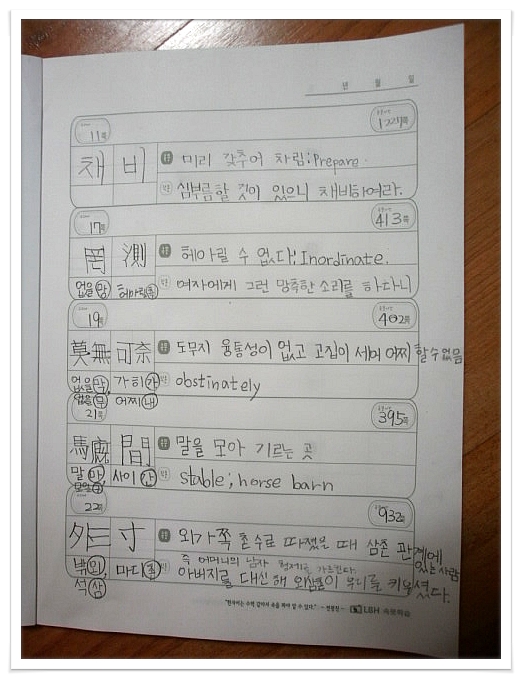 년 월 일
11쪽
1224쪽
채비
미리 갖추어 차림; Prepare.
심부름할 것이 있으니 채비하여라.
17쪽
413쪽
罔測
헤아릴 수 없다; Inordinate.
없을 망, 헤아릴 측
여자에게 그런 망측한 소리를 하다니
19쪽
402쪽
莫無可奈
도무지 융통성이 없고 고집이 세어 어찌 할 수 없음
없을 막, 가히 가
obstinately
없을 무 어찌 내
21쪽
395쪽
馬廐間
말을 모아 기르는 곳
말 마, 사이 간
stable; horse barn
22쪽
932쪽
外三寸
외가쪽 촌수로 따졌을 때 삼촌 관계에 있는 사람
즉 어머니의 남자 형제를 가르킨다.
밖 외, 마디 촌
아버지를 대신해 외삼촌이 우리를 키우셨다.
석 삼
LBH 속뜻학습